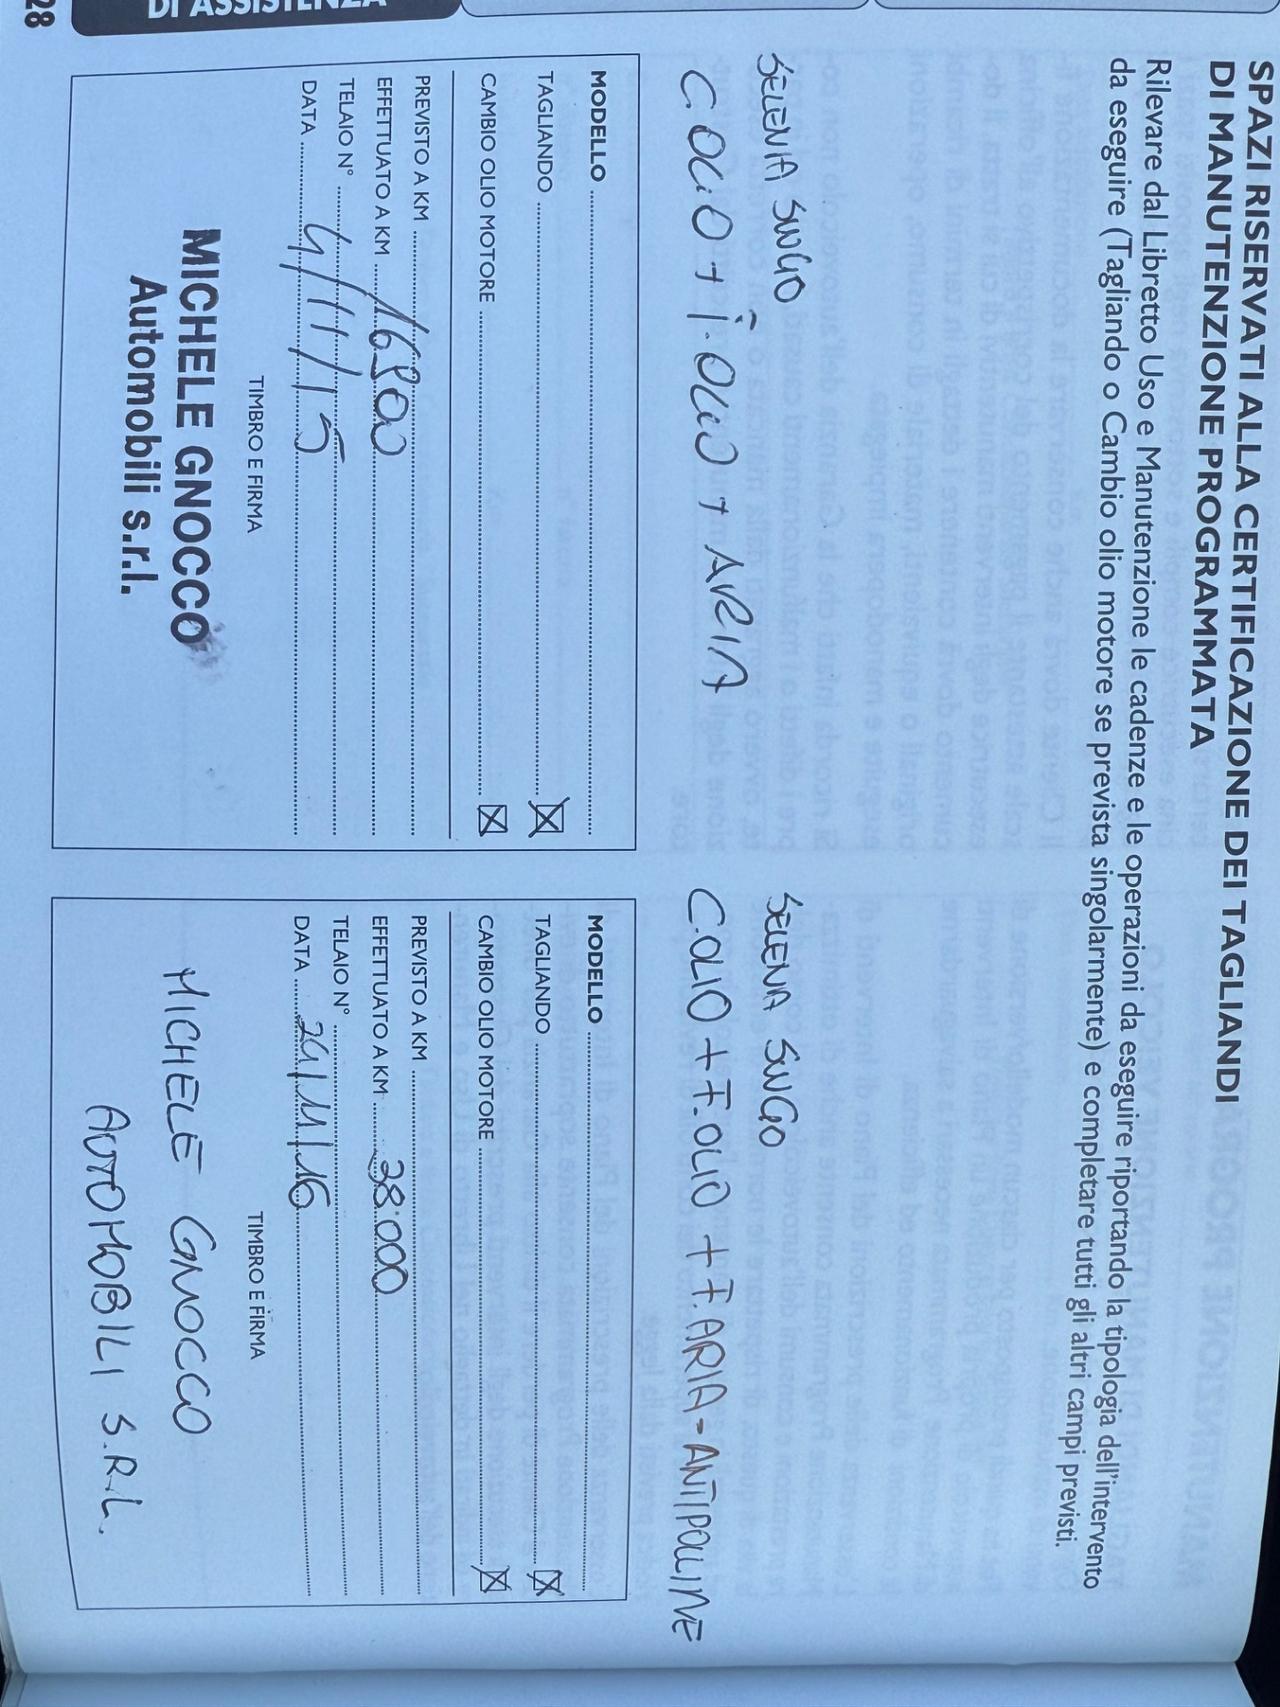 SPAZI RISERVATI ALLA CERTIFICAZIONE DEI TAGLIANDI
DI MANUTENZIONE PROGRAMMATA
Rilevare dal Libretto Uso e Manutenzione le cadenze e le operazioni da eseguire riportando la tipologia dell'intervento
da eseguire (Tagliando o Cambio olio motore se prevista singolarmente) e completare tutti gli altri campi previsti.
SELENIA
C. OLIO + F. OLIO + ARIA
MODELLO
TAGLIANDO ☒
CAMBIO OLIO MOTORE ☒
PREVISTO A KM
EFFETTUATO A KM 16900
TELAIO N°
DATA 4/11/15
TIMBRO E FIRMA
MICHELE GNOCCO
Automobili s.r.l.
SELENIA
C.OLIO + F.OLIO + F.ARIA-ANTIPOLLINE
MODELLO
TAGLIANDO ☒
CAMBIO OLIO MOTORE ☒
PREVISTO A KM
EFFETTUATO A KM 38.000
TELAIO N°
DATA 24/11/16
TIMBRO E FIRMA
MICHELE GNOCCO
AUTOMOBILI S.R.L.
DI ASSISTENZA
28